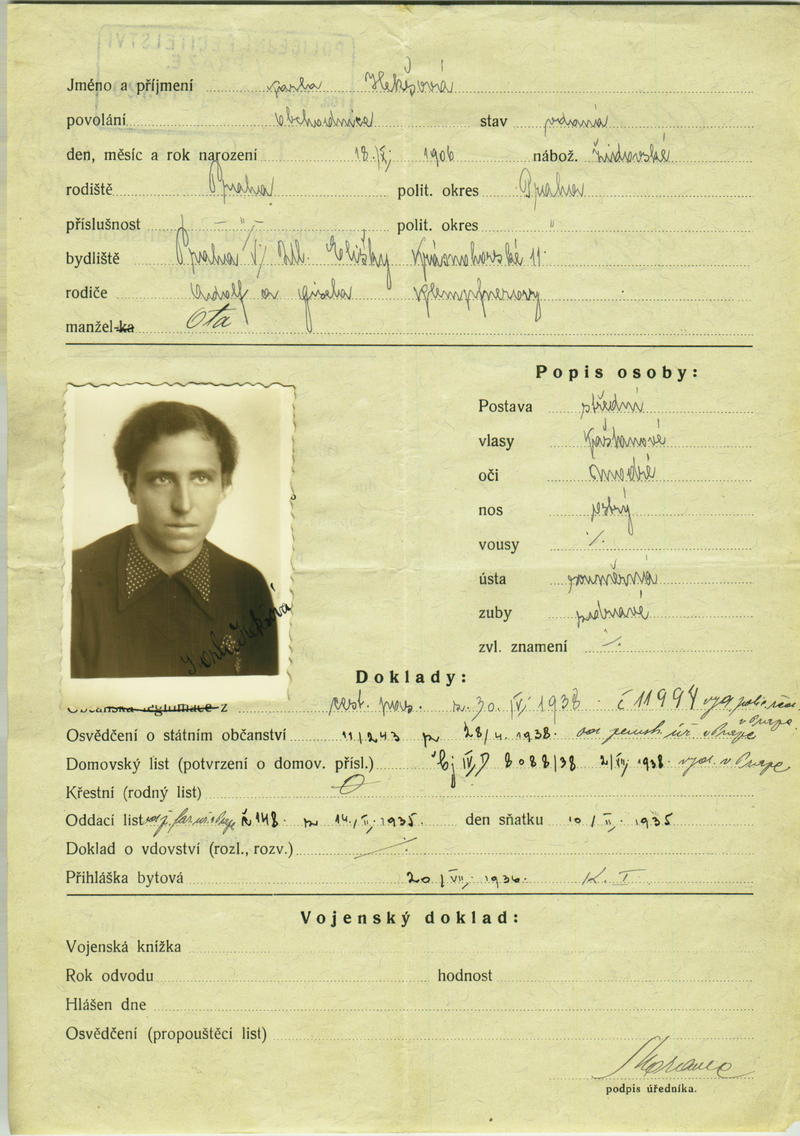 Jméno a příjmení Hekšová
povolání obchodnice stav vdaná
den, měsíc a rok narození 18./X. 1906 nábož. židovské
rodiště Praha polit. okres Praha
příslušnost — " — polit. okres "
bydliště Praha V/ Elišky Krásnohorské 11
rodiče Adolf a Gisela Klempfnerovy
manžel-ka Ota
Popis osoby:
Postava střední
vlasy kaštanové
oči modré
nos
vousy ·/.
ústa souměrná
zuby zdravé
zvl. znamení ·/.
Hekšová
Doklady:
z cest. pas. z 30./IV. 1938 č 11994
Osvědčení o státním občanství 11243 z 28/4. 1938.
Domovský list (potvrzení o domov. přísl.) 8088/38 2/VII. 1938 vyd. v Praze
Křestní (rodný list) O
Oddací list č 148. z 14./II. 1935. den sňatku 10/II. 1935
Doklad o vdovství (rozl., rozv.) ·/.
Přihláška bytová 20/VII. 1936. K. I
Vojenský doklad:
Vojenská knížka
Rok odvodu hodnost
Hlášen dne
Osvědčení (propouštěcí list)
podpis úředníka.